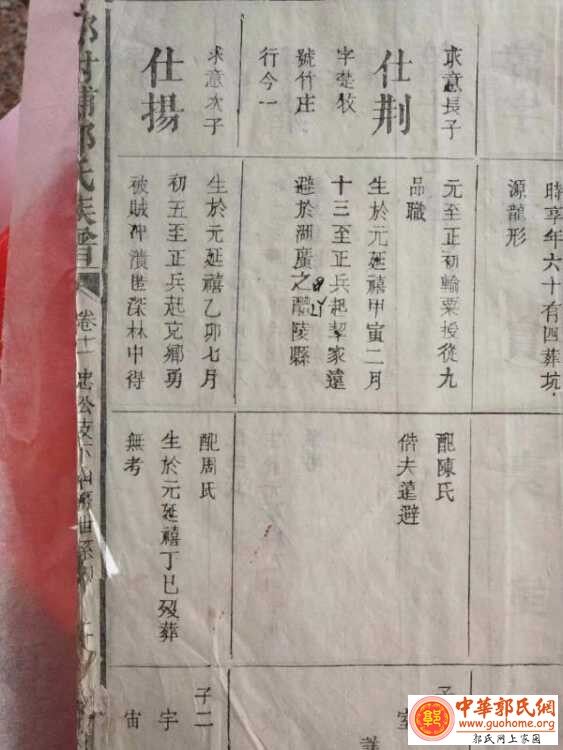 時享年六十有四葬坑
源龍形
求意長子
仕荆
字楚牧
號竹庄
行今一
元至正初輸粟授從九
品職
生於元延禧甲寅二月
十三至正兵起挈家遠
避於湖廣之醴陵縣
配陳氏
偕夫遠避
子
求意次子
仕揚
生於元延禧乙卯七月
初五至正兵起充鄉勇
被賊冲潰匿深林中得
配周氏
生於元延禧丁巳殁葬
無考
子二
宇
宙
郭氏族
卷十一 忠公支下
中華郭氏網
www.guohome.org
郭氏网上家園